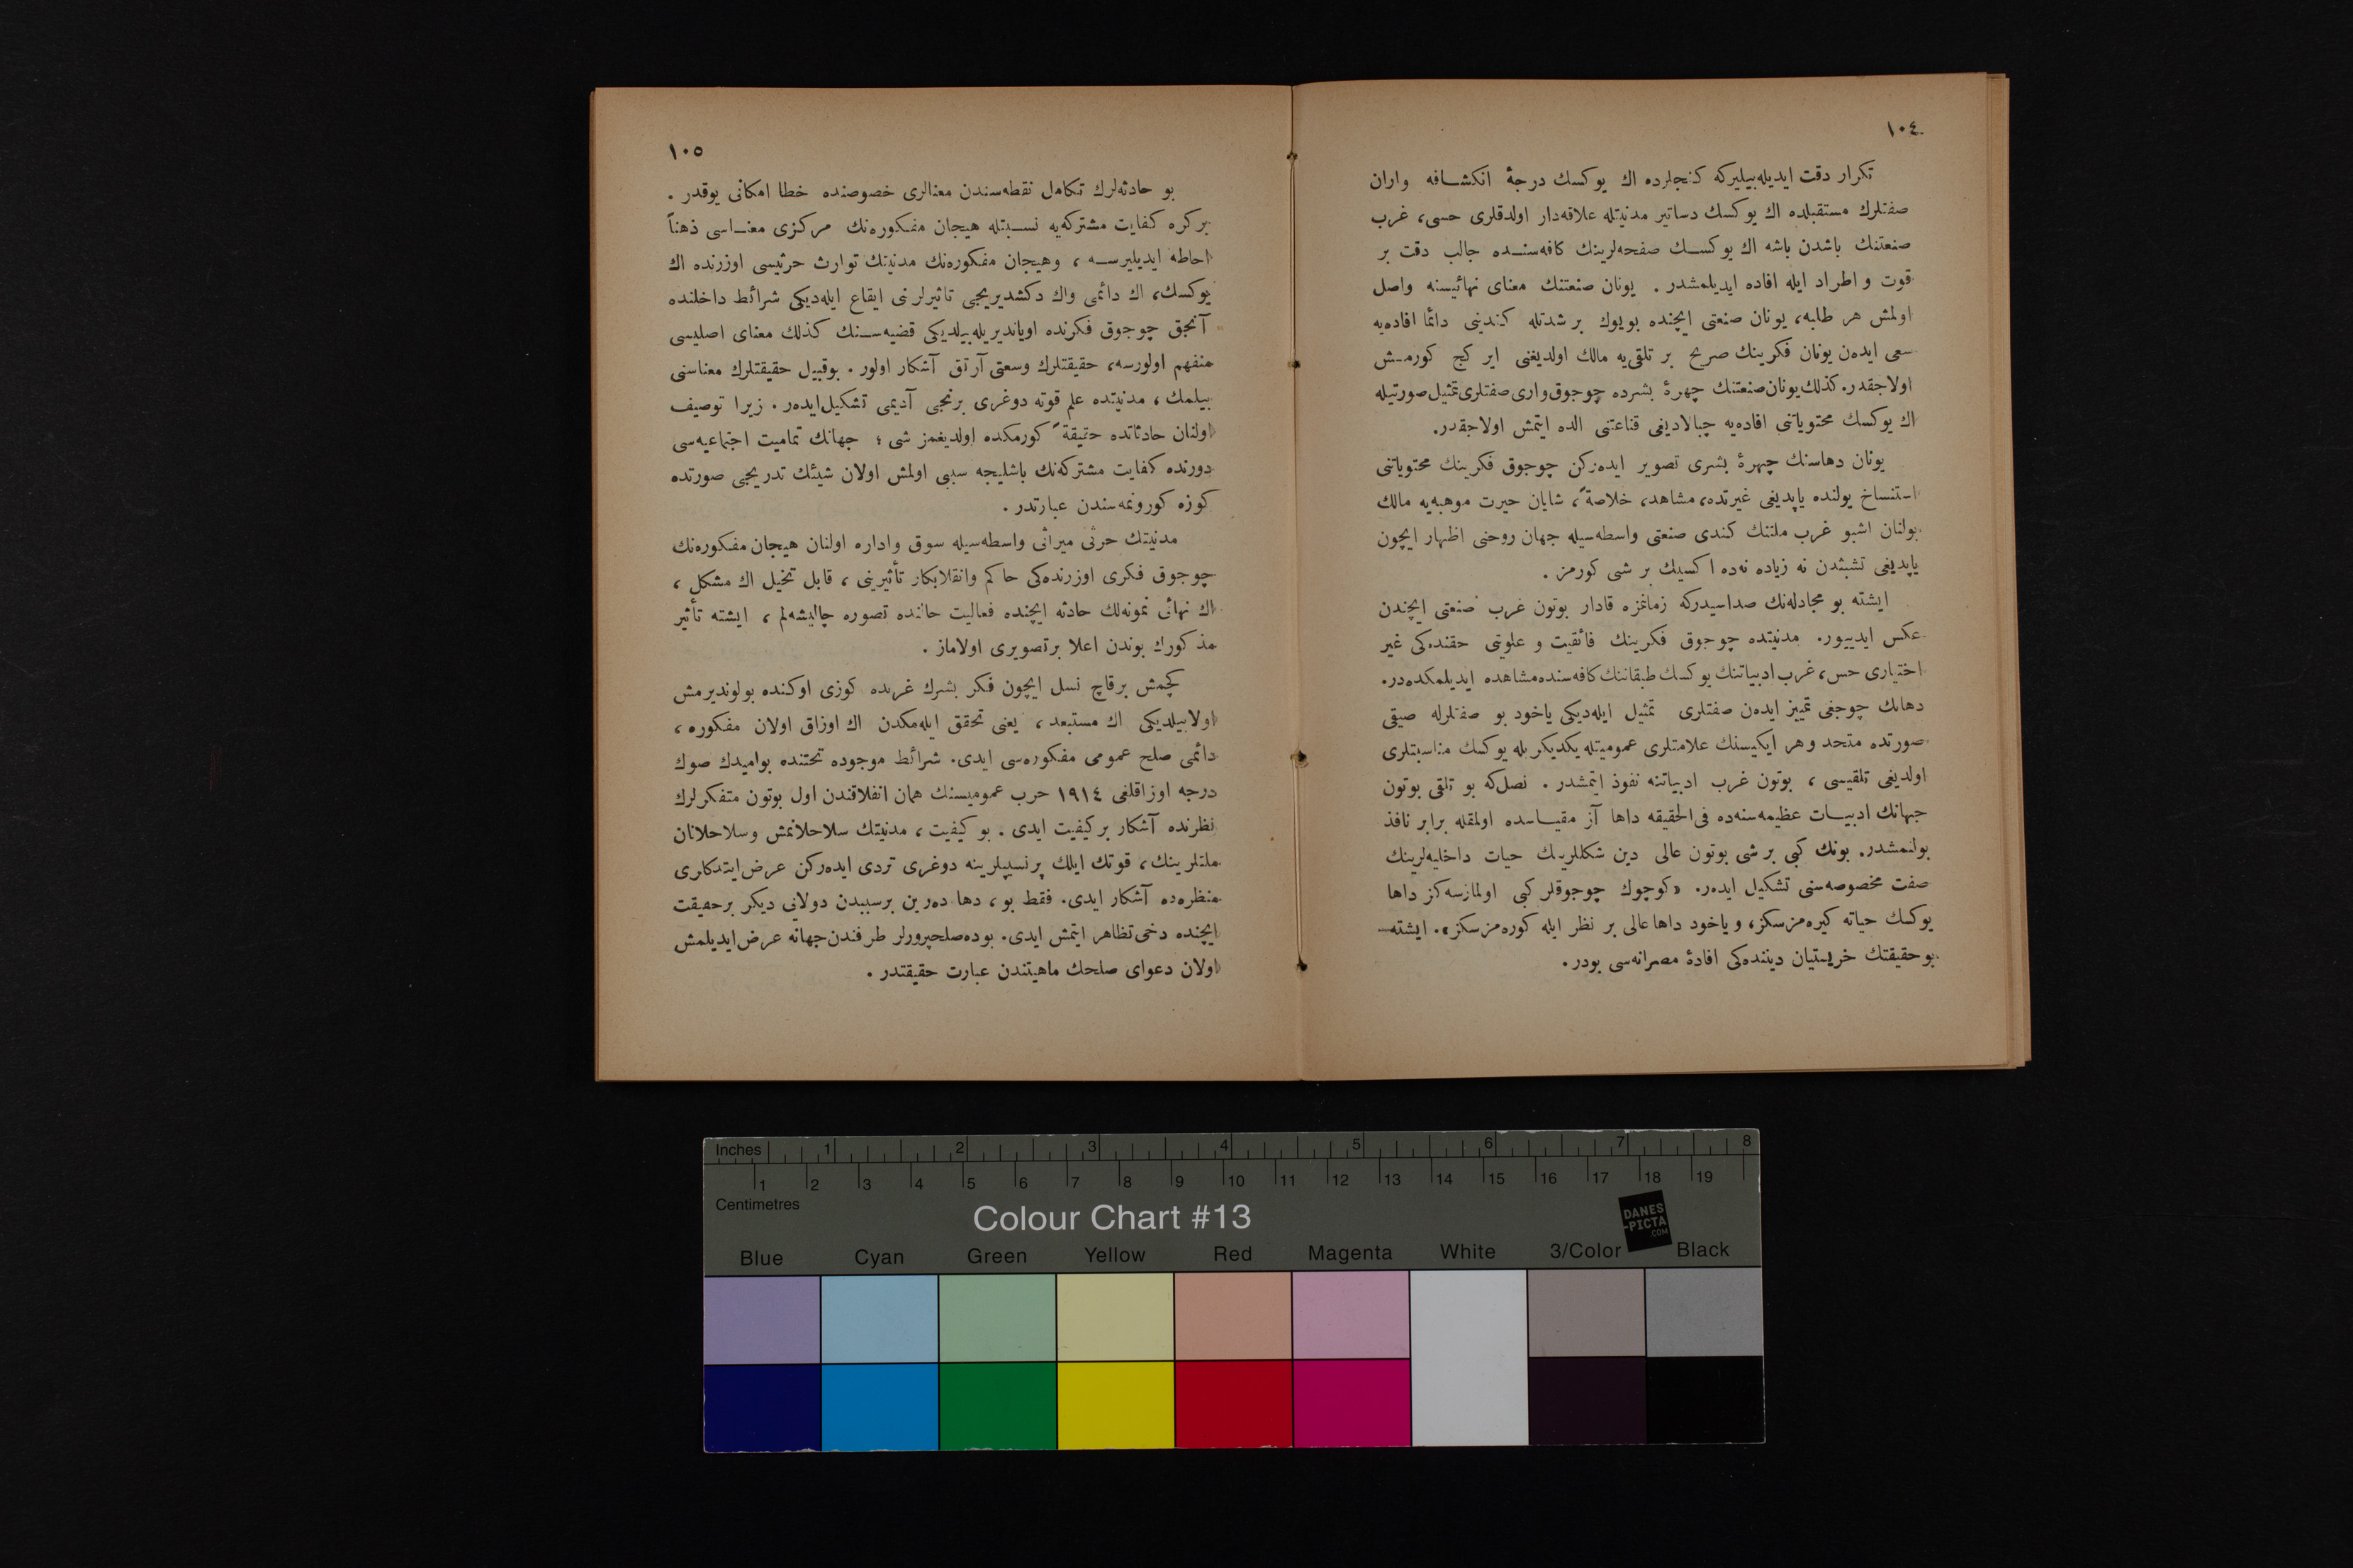 ١٠٤
تكرار دقت ايديله‌بيليركه كنجلرده اك يوكسك درجهٔ انكشافه واران
صفتلرك مستقبلده اك يوكسك دساتير مدنيتله علاقه‌دار اولدقلرى حسى، غرب
صنعتنك باشدن باشه اك يوكسك صفحه‌لرينك كافه‌سنده جالب دقت بر
قوت و اطراد ايله افاده ايديلمشدر . يونان صنعتنك معناى نهائيسنه واصل
اولمش هر طلبه، يونان صنعتى ايچنده بويوك بر شدتله كنديني دائما افاده‌يه
سعى ايدەن يونان فكرينك صريح بر تلقى‌يه مالك اولديغنى اير كج كورمش
اولاجقدر. كذلك يونان صنعتنك چهرهٔ بشرده چوجوق وارى صفتلرى تمثيل صورتيله
اك يوكسك محتوياتنى افاده‌يه چبالاديغى قناعتنى الده ايتمش اولاجقدر.
يونان دهاسنك چهرهٔ بشرى تصوير ايدەركن چوجوق فكرينك محتوياتنى
استنساخ يولنده ياپديغى غيرتده، مشاهد، خلاصةً، شايان حيرت موهبه‌يه مالك
بولنان اشبو غرب ملتنك كندى صنعتى واسطه‌سيله جهان روحنى اظهار ايچون
ياپديغى تشبثدن نه زياده نه‌ده اكسيك بر شى كورمز .
ايشته بو مجادله‌نك صداسيدركه زمانمزه قادار بوتون غرب صنعتى ايچندن
عكس ايدييور. مدنيتده چوجوق فكرينك فائقيت و علويتى حقنده‌كى غير
اختيارى حس، غرب ادبياتنك يوكسك طبقاتنك كافه‌سنده مشاهده ايديلمكده‌در.
دهانك چوجغى تمييز ايدەن صفتلرى تمثيل ايله‌ديكى ياخود بو صفتلرله صيقى
صورتده متحد و هر ايكيسنك علامتلرى عموميتله يكديكريله يوكسك مناسبتلرى
اولديغى تلقيسى ، بوتون غرب ادبياتنه نفوذ ايتمشدر . نصل‌كه بو تلقى بوتون
جهانك ادبيات عظيمه‌سنه‌ده فى‌الحقيقه داها آز مقياسده اولمقله برابر نافذ
بولنمشدر. بونك كبى بر شى بوتون عالى دين شكللرينك حيات داخليه‌لرينك
صفت مخصوصه‌سنى تشكيل ايدەر. «كوچوك چوجوقلر كبى اولمازسه‌كز داها
يوكسك حياته كيره‌مزسكز، و ياخود داها عالى بر نظر ايله كوره‌مزسكز». ايشته
بو حقيقتك خريستيان ديننده‌كى افادهٔ مصرانه‌سى بودر.
١٠٥
بو حادثه‌لرك تكامل نقطه‌سندن معنالرى خصوصنده خطا امكانى يوقدر .
بركره كفايت مشتركه‌يه نسبتله هيجان مفكوره‌نك مركزى معناسى ذهناً
احاطه ايديليرسه ، وهيجان مفكوره‌نك مدنيتك توارث حرثيسى اوزرنده اك
يوكسك، اك دائمى واك دكشديريجى تاثيرلرنى ايقاع ايله‌ديكى شرائط داخلنده
آنجق چوجوق فكرنده اويانديريله‌بيلديكى قضيه‌سنك كذلك معناى اصليسى
منفهم اولورسه، حقيقتلرك وسعتى آرتق آشكار اولور . بوقبيل حقيقتلرك معناسنى
بيلمك ، مدنيتده علم قوته دوغرى برنجى آديمى تشكيل ايدەر . زيرا توصيف
اولنان حادثاتده حقيقةً كورمكده اولديغمز شى ؛ جهانك تماميت اجتماعيه‌سى
دورنده كفايت مشتركه‌نك باشليجه سببى اولمش اولان شيئك تدريجى صورتده
كوزه كورونمه‌سندن عبارتدر .
مدنيتك حرثى ميراثى واسطه‌سيله سوق واداره اولنان هيجان مفكوره‌نك
چوجوق فكرى اوزرنده‌كى حاكم وانقلابكار تأثيرينى ، قابل تخيل اك مشكل ،
اك نهائى نمونه‌لك حادثه ايچنده فعاليت حالنده تصوره چاليشه‌لم ، ايشته تأثير
مذكورك بوندن اعلا برتصويرى اولاماز .
كچمش برقاچ نسل ايچون فكر بشرك غربده كوزى اوكنده بولونديرمش
اولابيلديكى اك مستبعد ، يعنى تحقق ايله‌مكدن اك اوزاق اولان مفكوره ،
دائمى صلح عمومى مفكوره‌سى ايدى. شرائط موجوده تحتنده بواميدك صوك
درجه اوزاقلغى ١٩١٤ حرب عموميسنك همان انفلاقندن اول بوتون متفكرلرك
نظرنده آشكار بركيفيت ايدى . بو كيفيت ، مدنيتك سلاحلانمش وسلاحلانان
ملتلرينك ، قوتك ايلك پرنسيپلرينه دوغرى تردى ايدەركن عرض ايتدكلرى
منظره‌ده آشكار ايدى. فقط بو ، دها دەرين برسببدن دولايى ديكر برحقيقت
ايچنده دخى تظاهر ايتمش ايدى. بوده‌ صلحپرورلر طرفندن جهانه عرض ايديلمش
اولان دعواى صلحك ماهيتندن عبارت حقيقتدر .
Inches 1 2 3 4 5 6 7 8
1 2 3 4 5 6 7 8 9 10 11 12 13 14 15 16 17 18 19
Centimetres
Colour Chart #13
DANES
-PICTA
.COM
Blue Cyan Green Yellow Red Magenta White 3/Color Black